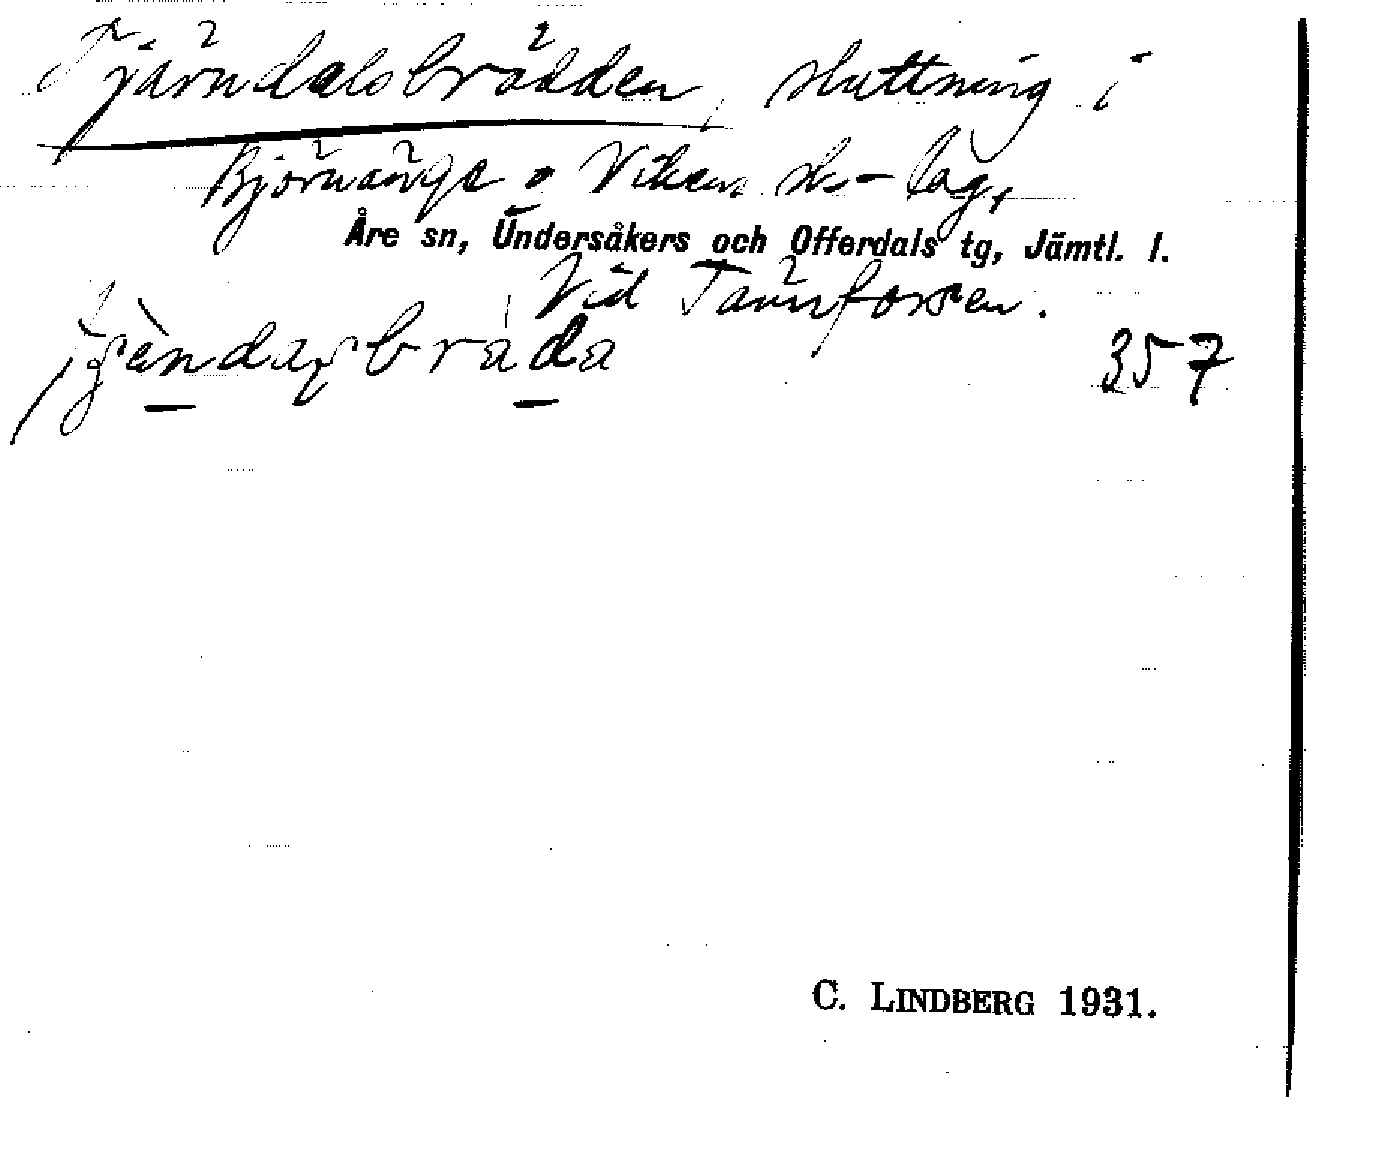 Tjärndalsbrädden, sluttning i
Björnänge o Viken sk-lag,
Åre sn, Undersåkers och Offerdals tg, Jämtl. l.
Vid Tännforsen.
357
C. LINDBERG 1931.